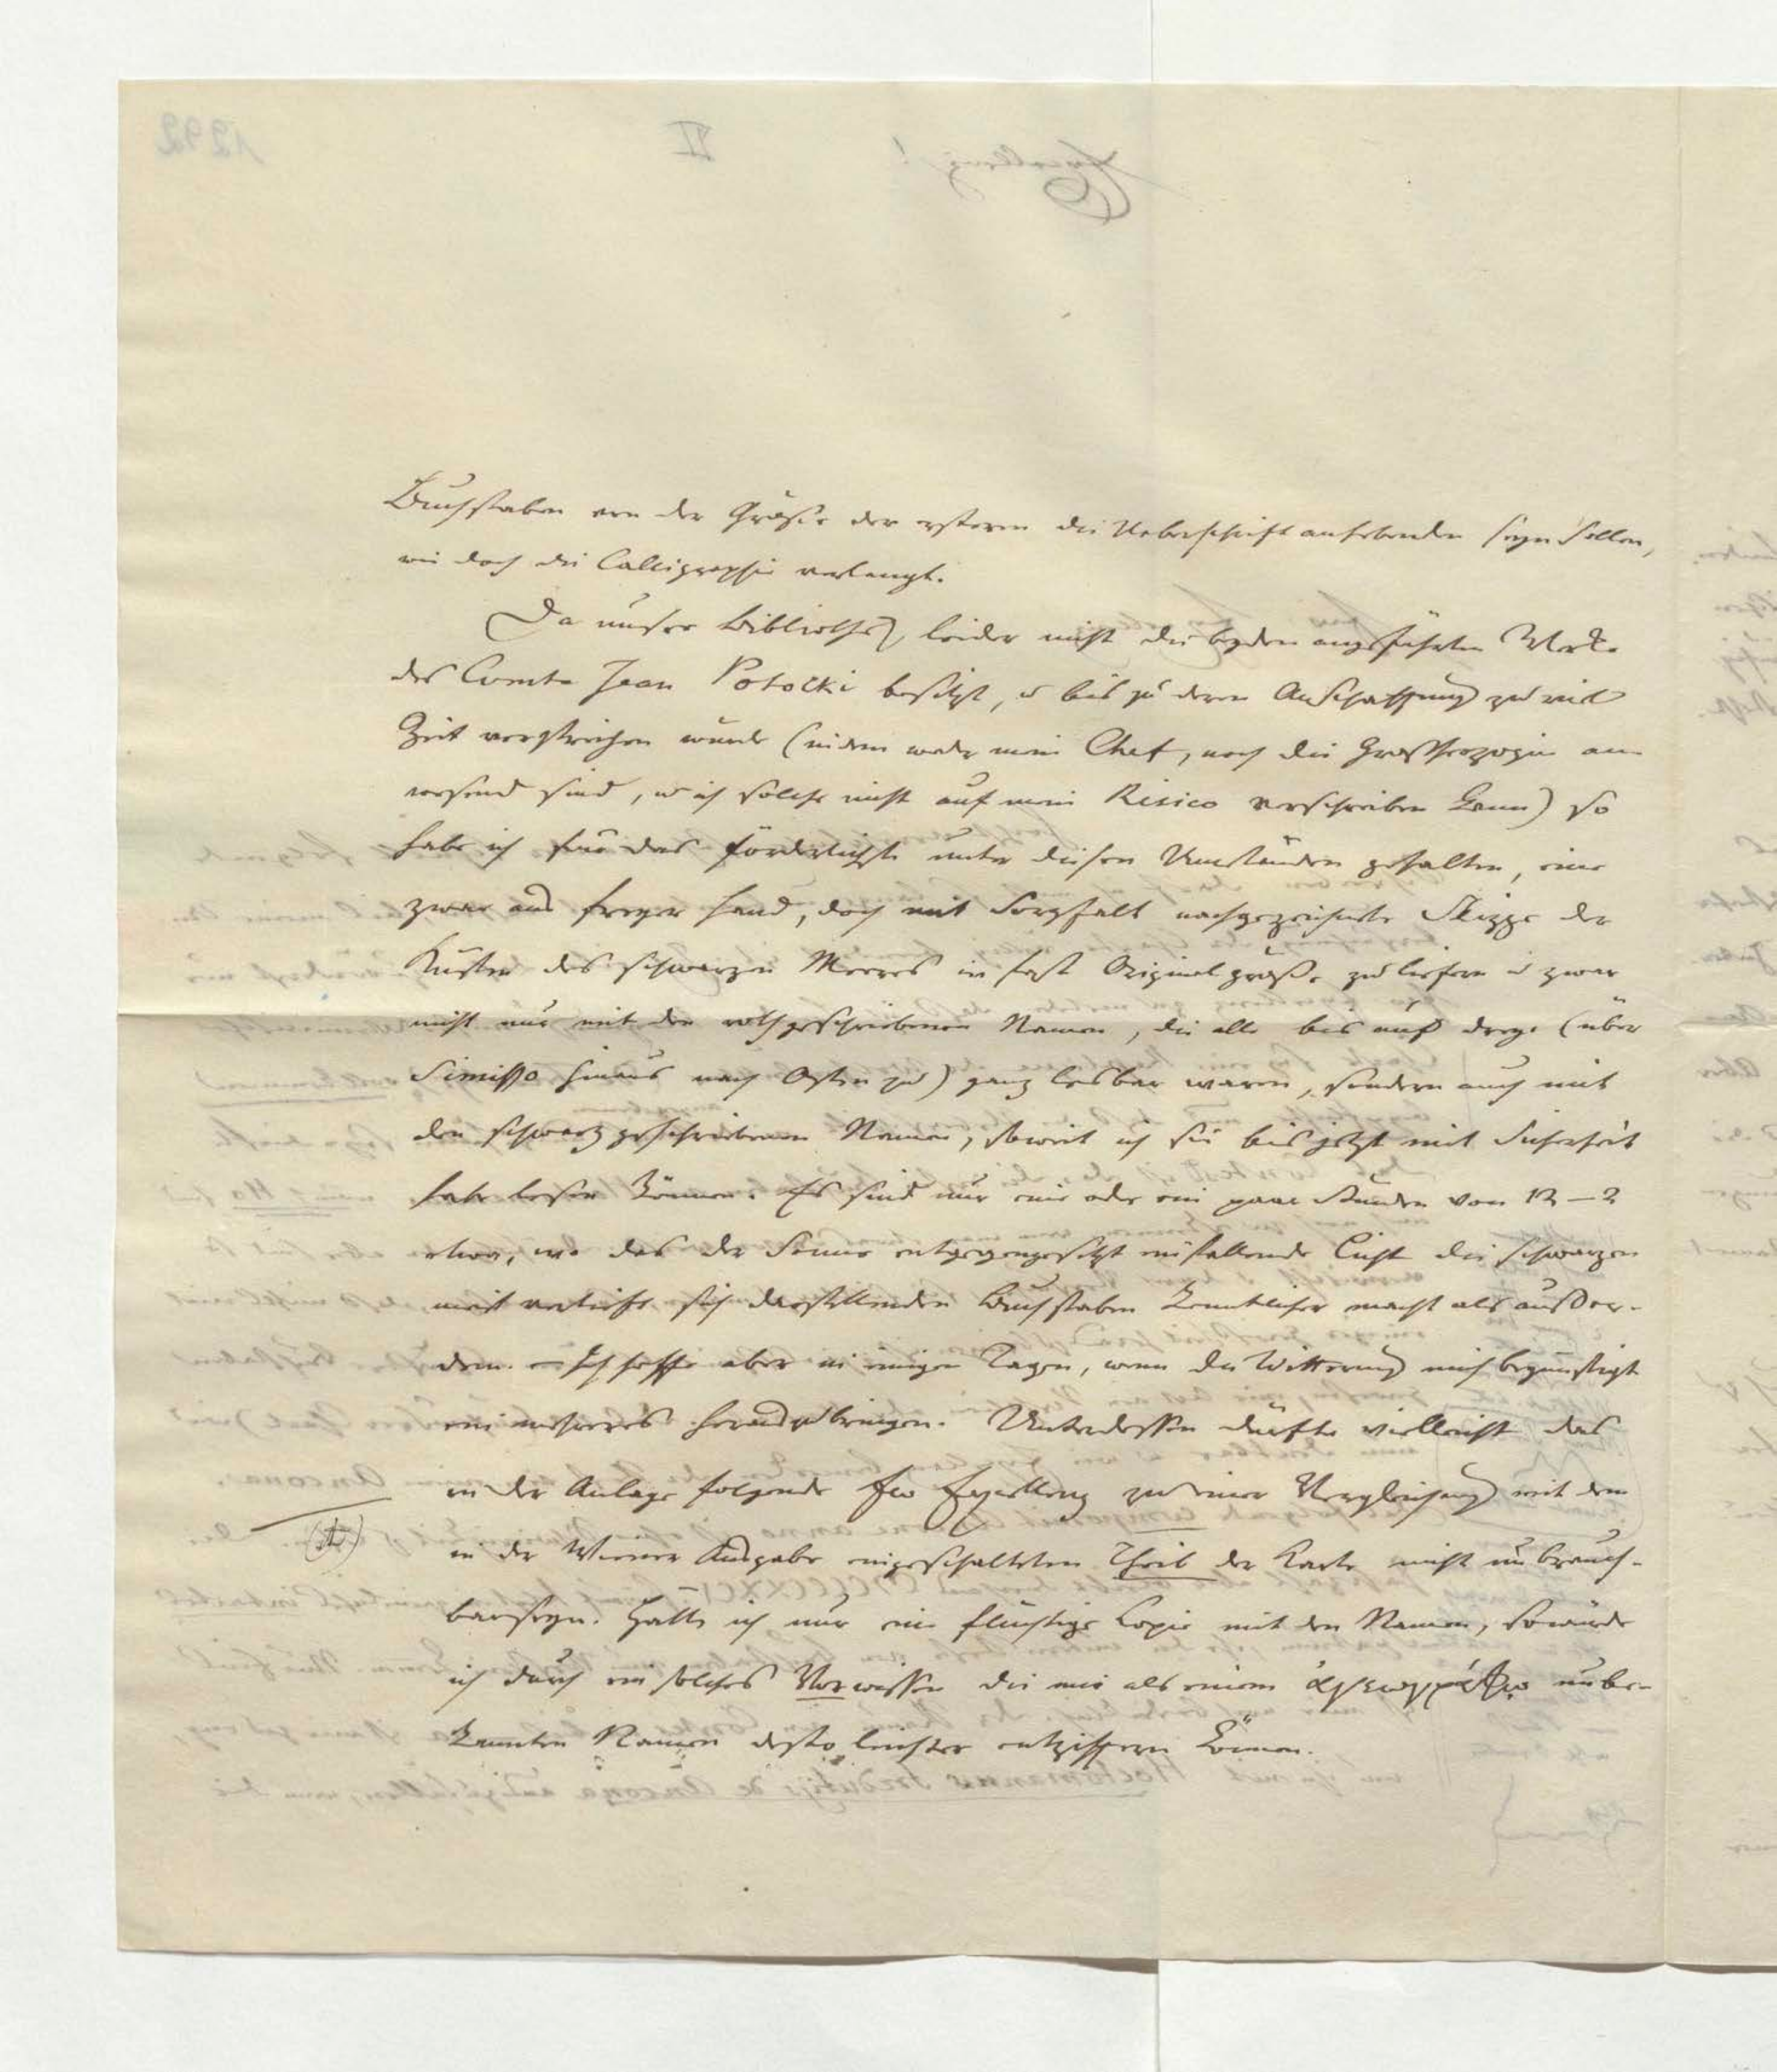 Buchstaben von der Größe der ersteren die Ueberschrift anhebenden seyn sollen,
wie doch die Calligraphie verlangt.
Da unsere Bibliothek leider nicht die beyden angeführten Werke
des Comte Jean Potocki besitzt, u bis zu deren Anschaffung zu viel
Zeit verstreichen würde (indem weder mein Chef, noch die Großherzogin an
wesend sind, u ich solche nicht auf mein Risico verschreiben kann) so
habe ich für das förderlichste unter diesen Umständen gehalten, eine
zwar aus freyer Hand, doch mit Sorgfalt nachgezeichnete Skizze der
Küsten des schwarzen Meeres in fast Originalgröße zu liefern u zwar
nicht nur mit den roth geschriebenen Namen, die alle bis auf dreye (über
Simisso hinaus nach Osten zu) ganz lesbar waren, sondern auch mit
den schwarz geschriebenen Namen, soweit ich sie bis jetzt mit Sicherheit
habe lesen können. Es sind nur eine oder ein paar Stunden von 12–2
etwa, wo das der Sonne entgegengesetzt einfallende Licht die schwarzen
meist verlöscht sich darstellenden Buchstaben kenntlicher macht als außer-
dem. – Ich hoffe aber in einigen Tagen, wenn die Witterung mich begünstigt
ein mehreres herauszubringen. Unterdessen dürfte vielleicht das
in der Anlage folgende Ew Excellenz zu einer Vergleichung mit dem
in der Wiener Ausgabe eingeschalteten Theil der Karte nicht unbrauch-
bar seyn. Hätte ich nur eine flüchtige Copie mit den Namen, so würde
ich durch ein solches Vorwissen die mir als einem ἀγεωγράφῳ unbe-
kannten Namen desto leichter entziffern können.